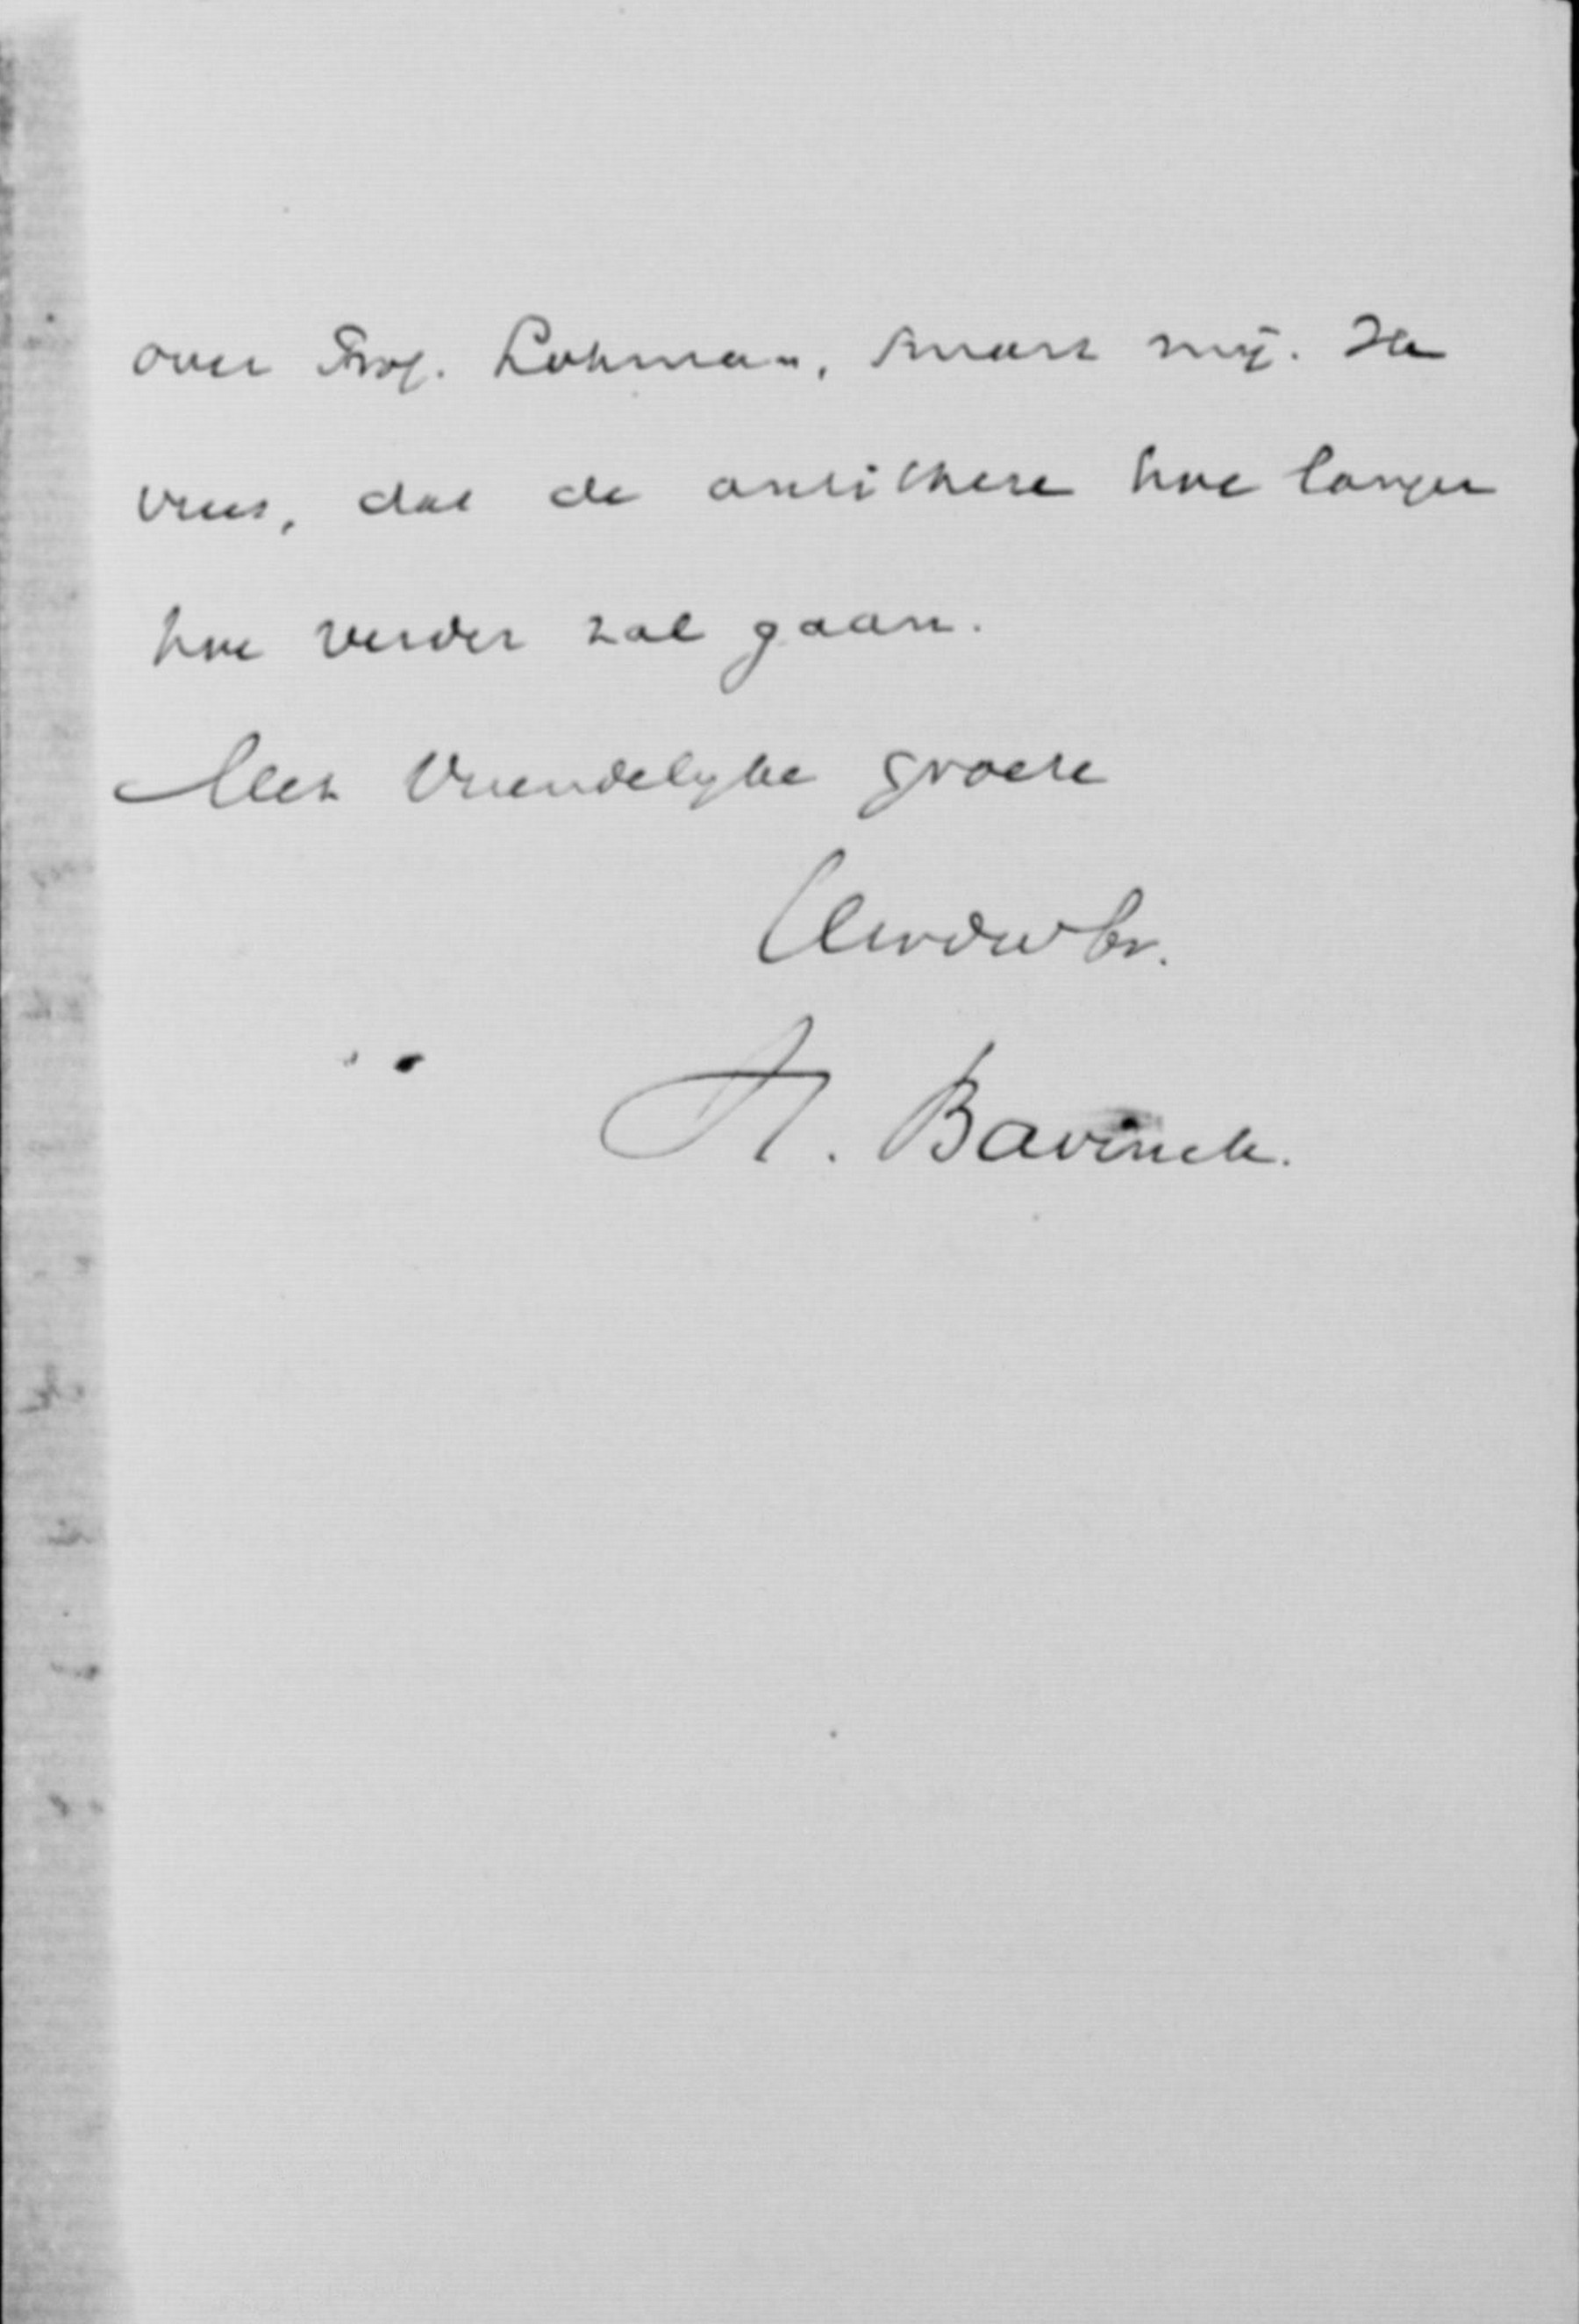 over Prof. Lohman, smart mij. Ik
vrees, dat de antithese hoe langer
hoe verder zal gaan.
Met vriendelijke groete
Uwdwbr.
H. Bavinck.